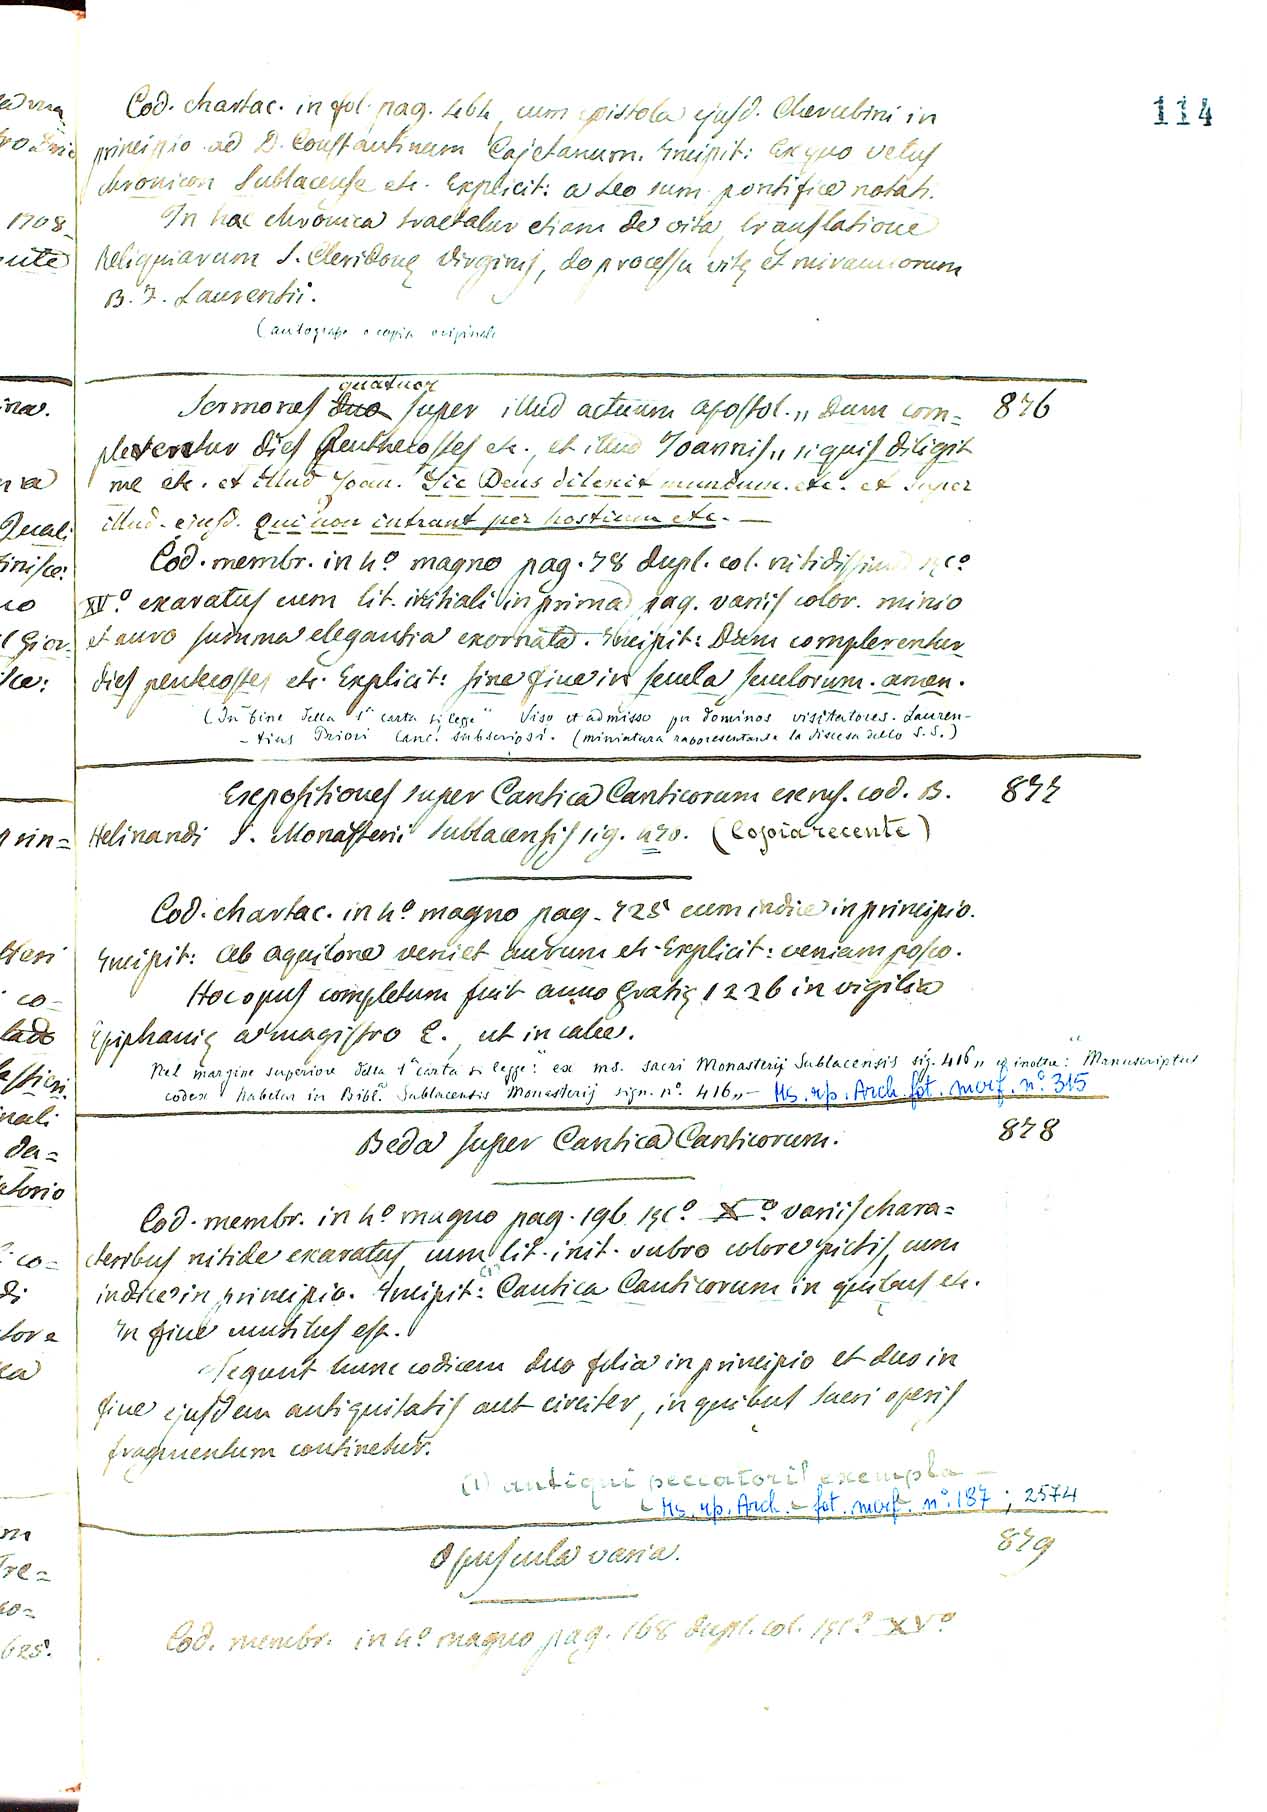 114
Cod. chartac. in fol. pag. 464, cum epistola ejusd. Cherubini in
principio ad D. Constantinum Cajetanum. Incipit: Ex quo vetus
chronicon Sublacense etc. Explicit: a Leo sum pontifice notati.
In hac chronica tractatur etiam de vita, translatione
Reliquiarum S. Cleridonę Virginis, de processu vitę et miraculorum
B. F. Laurentii.
(autografo o copia originale
quatuor
Sermones duo super illud actuum apostol. „ Dum com= 876
plerentur dies Penthecostes etc., et illud Joannis „ siquis diligit
me etc. et illud Joan. Sic Deus dilexit mundum. etc. et super
illud. ejusd. Qui non intrant per hostium etc. —
Cod. membr. in 4º magno pag. 78 dupl. col. nitidissime sęcº
XVº exaratus cum lit. initiali in prima pag. variis color. minio
et auro summa elegantia exornata. Incipit: Dum complerentur
dies pentecostes etc. Explicit: sine fine in secula seculorum. amen.
(In fine della 1ª carta si legge " Viso et admisso per dominos visitatores. Lauren-
-tius Priori Canc. subscripsi. (miniatura rappresentante la discesa dello S.S.)
Expositiones super Cantica Canticorum ex ms. cod. B. 877
Helinandi S. Monasterii Sublacensis sig. 470. (Copia recente)
Cod. chartac. in 4º magno pag. 725 cum indice in principio.
Incipit: Ab aquilone veniet aurum etc. Explicit: veniam posco.
Hoc opus completum fuit anno gratię 1226 in vigilia
Epiphanię a magistro E., ut in calce.
Nel margine superiore della 1ª carta si legge: " ex ms. sacri Monasterij Sublacensis sig. 416 „ ed inoltre: " Manuscriptus
codex habetur in Biblª Sublacensis Monasterij sign. nº. 416 „ — Ms. rp. Arch. fot. morf. nº. 315
Beda super Cantica Canticorum. 878
Cod. membr. in 4º magno pag. 196 sęcº Xº variis chara=
cteribus nitide exaratus, cum lit. init. rubro colore pictis, cum
indice in principio. Incipit: (1) Cantica Canticorum in quibus etc.
In fine mutilus est.
Tegunt hunc codicem duo folia in principio et duo in
fine ejusdem antiquitatis aut circiter, in quibus sacri operis
fragmentum continetur.
(1) antiqui peccatoris exempla —
Ms. rp. Arch. fot. morf. nº. 187 ; 2574
Opuscula varia. 879
Cod. membr. in 4º magno pag. 168 dupl. col. sęcº XVº